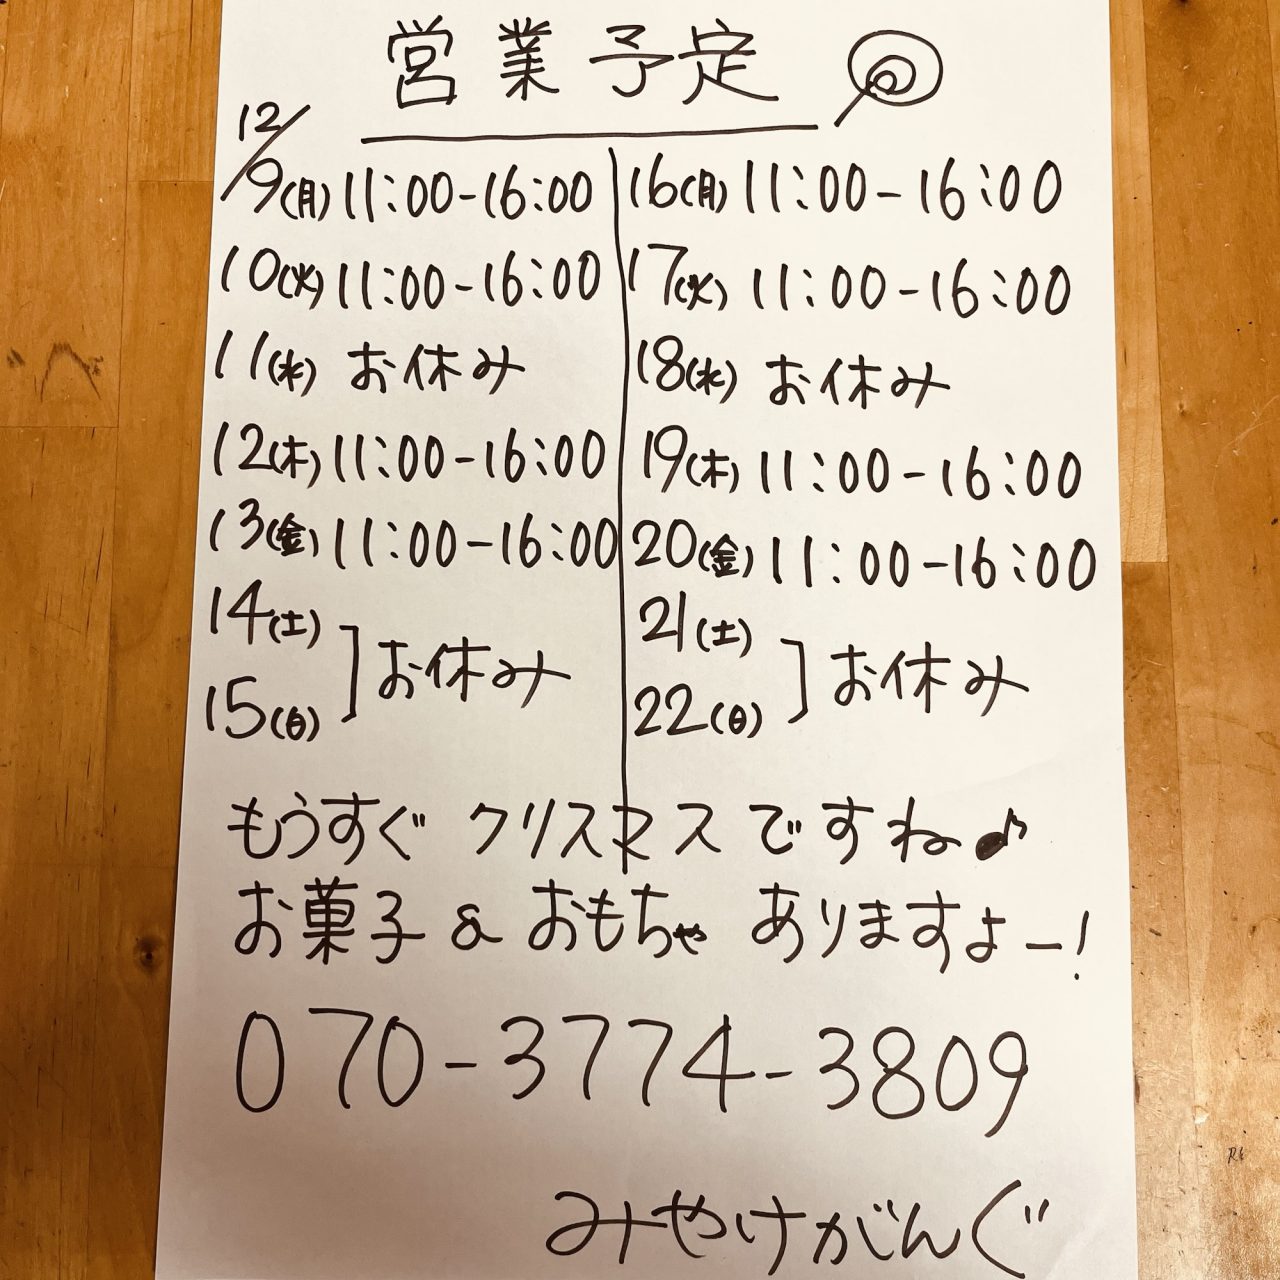 営業予定
12/9(月) 11:00-16:00
10(火) 11:00-16:00
11(水) お休み
12(木) 11:00-16:00
13(金) 11:00-16:00
14(土)
15(日) ] お休み
16(月) 11:00-16:00
17(火) 11:00-16:00
18(水) お休み
19(木) 11:00-16:00
20(金) 11:00-16:00
21(土)
22(日) ] お休み
もうすぐ クリスマスですね♪
お菓子 & おもちゃ ありますよー!
070-3774-3809
みやけがんぐ